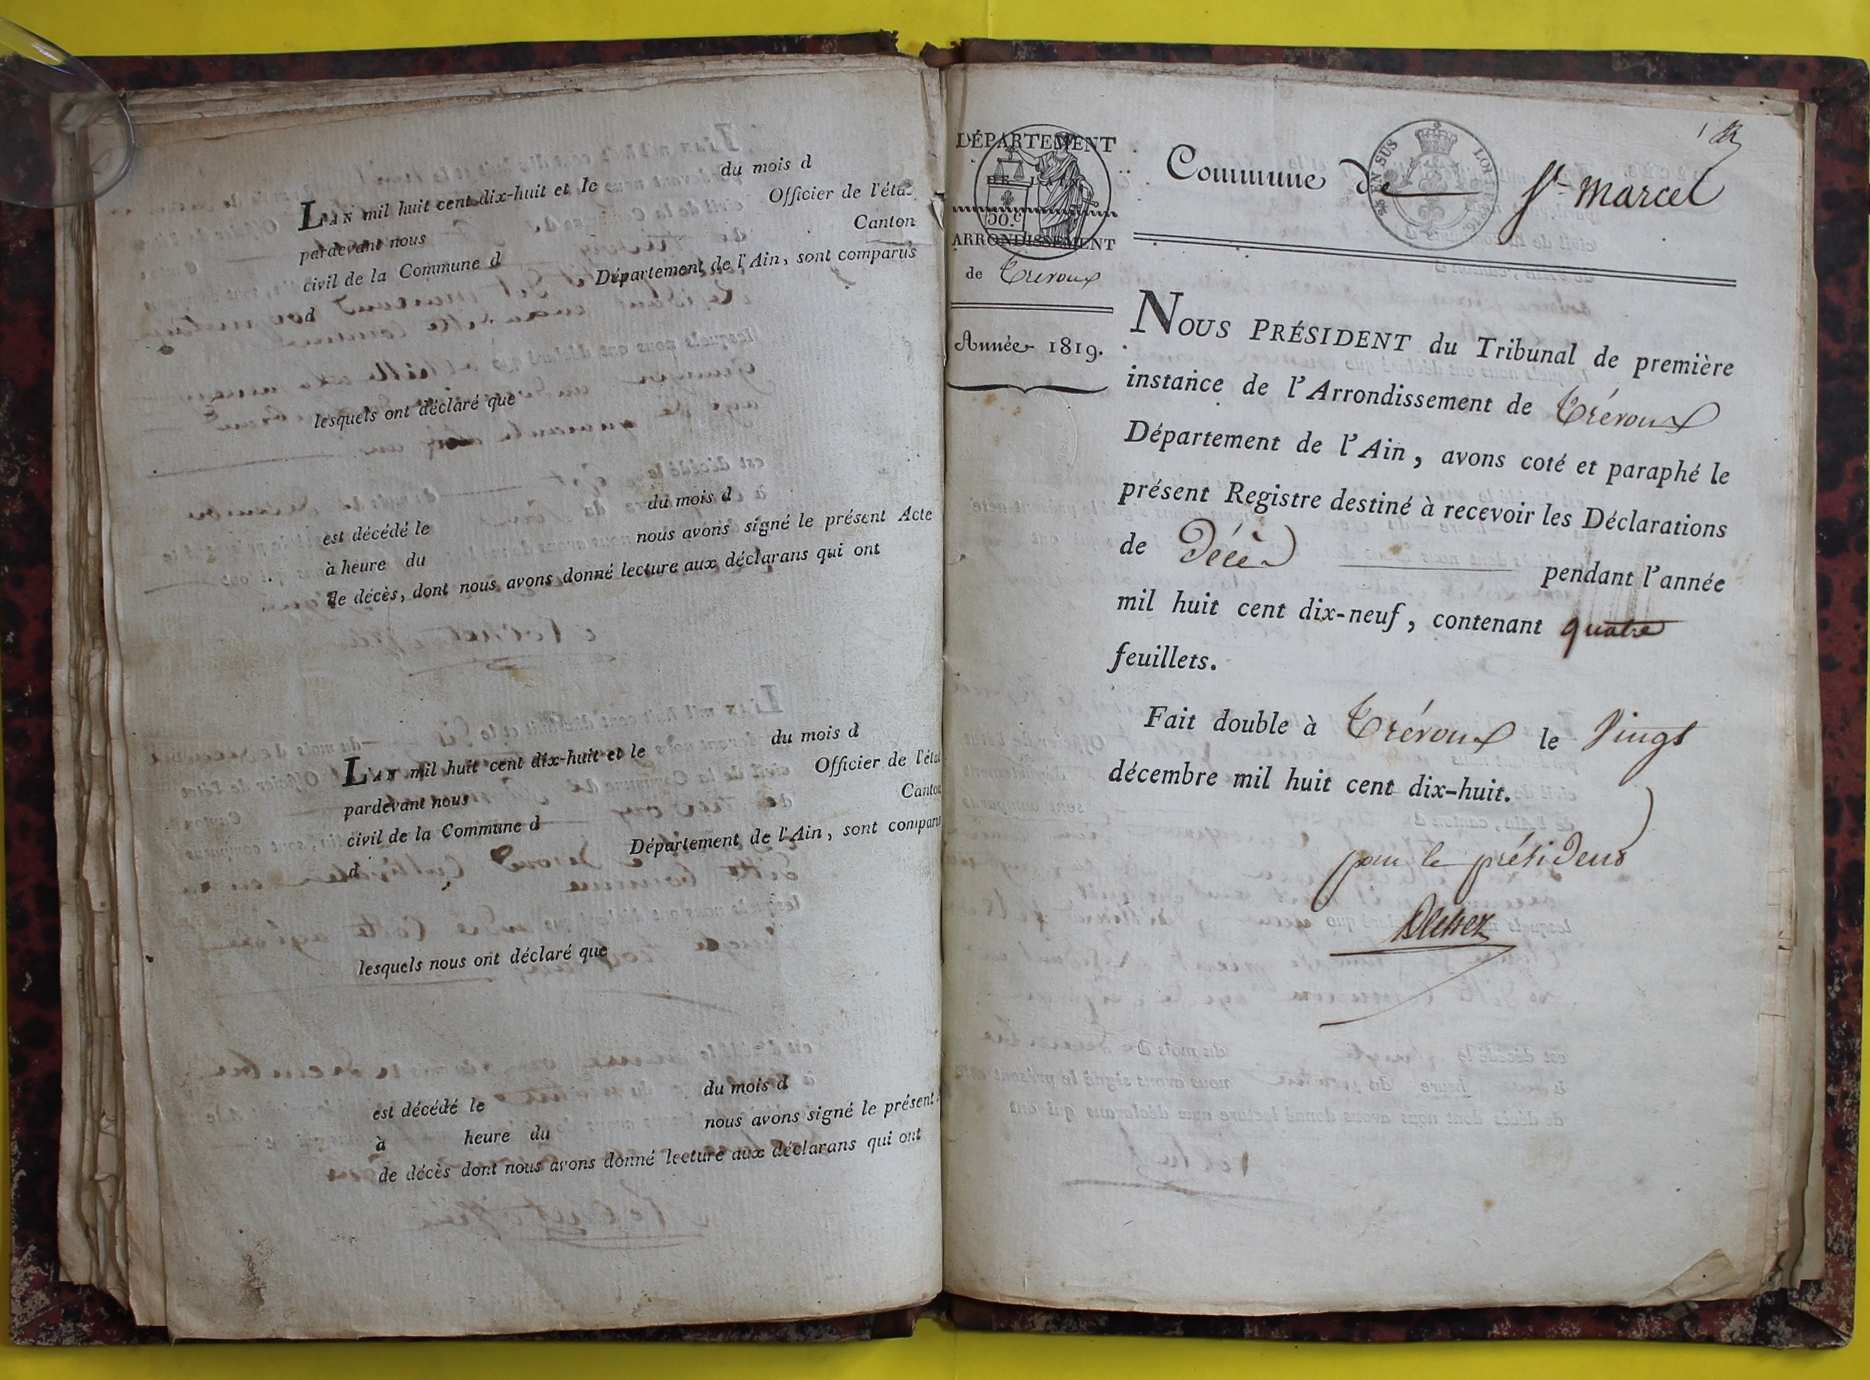 L'AN mil huit cent dix-huit et le du mois d
pardevant nous Officier de l'éta
civil de la Commune d Canton
d Département de l'Ain, sont comparus
lesquels ont déclaré que
est décédé le du mois d
à heure du nous avons signé le présent Acte
de décès, dont nous avons donné lecture aux déclarans qui ont
L'AN mil huit cent dix-huit et le du mois d
pardevant nous Officier de l'état
civil de la Commune d Canton
d Département de l'Ain, sont comparu
lesquels nous ont déclaré que
est décédé le du mois d
à heure du nous avons signé le présent
de décès dont nous avons donné lecture aux déclarans qui ont
1
DÉPARTEMENT
DE L'
50.c
ARRONDISSEMENT
de Trevoux
Année 1819.
Commune de St Marcel
EN SUS
NOUS PRÉSIDENT du Tribunal de première
instance de l'Arrondissement de Trévoux
Département de l'Ain, avons coté et paraphé le
présent Registre destiné à recevoir les Déclarations
de Décès pendant l'année
mil huit cent dix-neuf, contenant quatre
feuillets.
Fait double à Trévoux le Vingt
décembre mil huit cent dix-huit.
pour le président